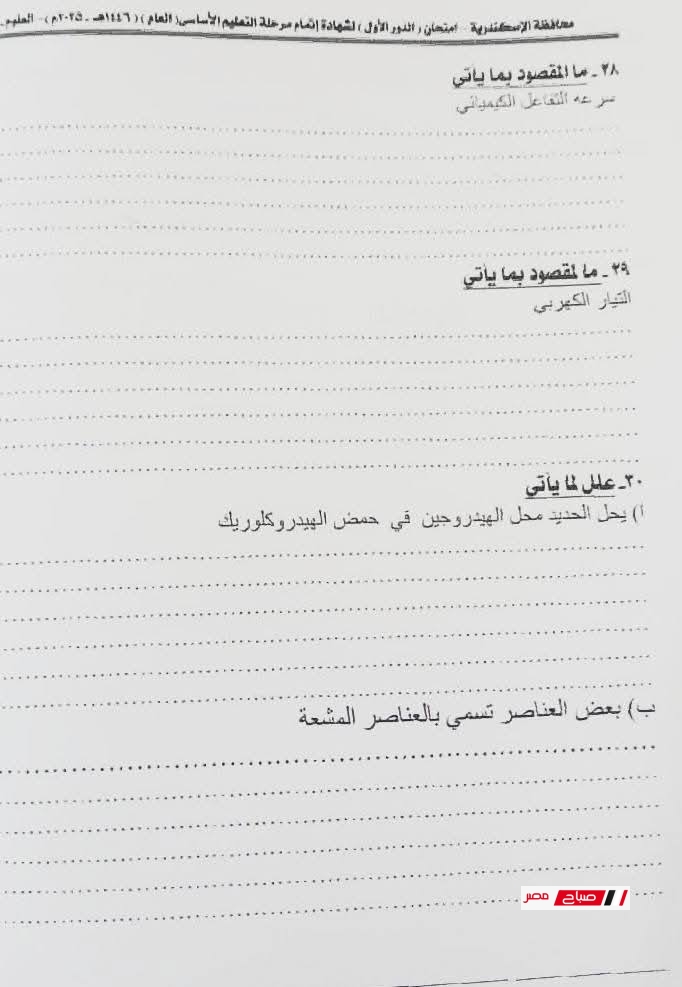 محافظة الإسكندرية - امتحان ( الدور الأول ) لشهادة إتمام مرحلة التعليم الأساسى ( العام ) ( ١٤٤٦هـ - ٢٠٢٥م ) - العلوم -
٢٨ - ما المقصود بما يأتي
سرعه التفاعل الكيميائي
٢٩ - ما لمقصود بما يأتي
التيار الكهربي
٣٠- علل لما يأتي
أ) يحل الحديد محل الهيدروجين في حمض الهيدروكلوريك
ب) بعض العناصر تسمي بالعناصر المشعة
صباح مصر